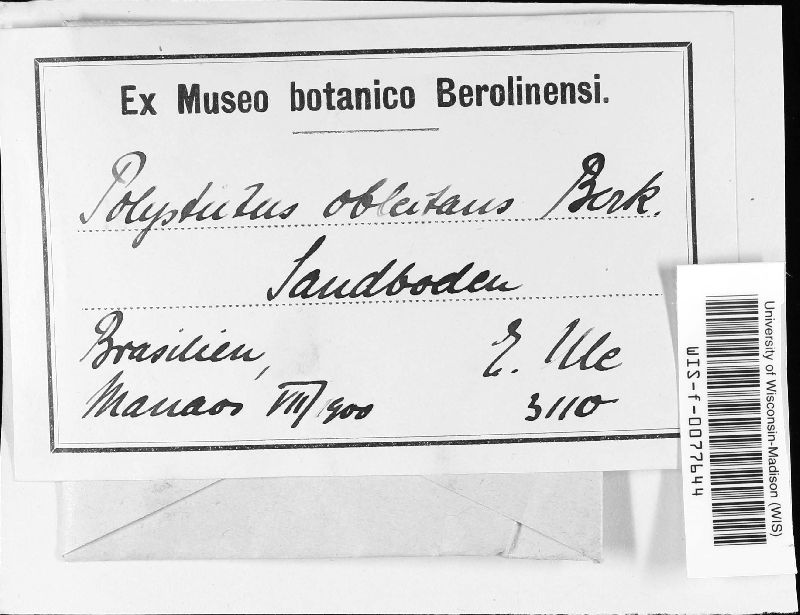 Ex Museo botanico Berolinensi.
Polystutus oblectans Berk.
Sandboden
Brasilien,
E. Ule
Manaos VIII/1900
3110
University of Wisconsin-Madison (WIS)
WIS-f-0077644